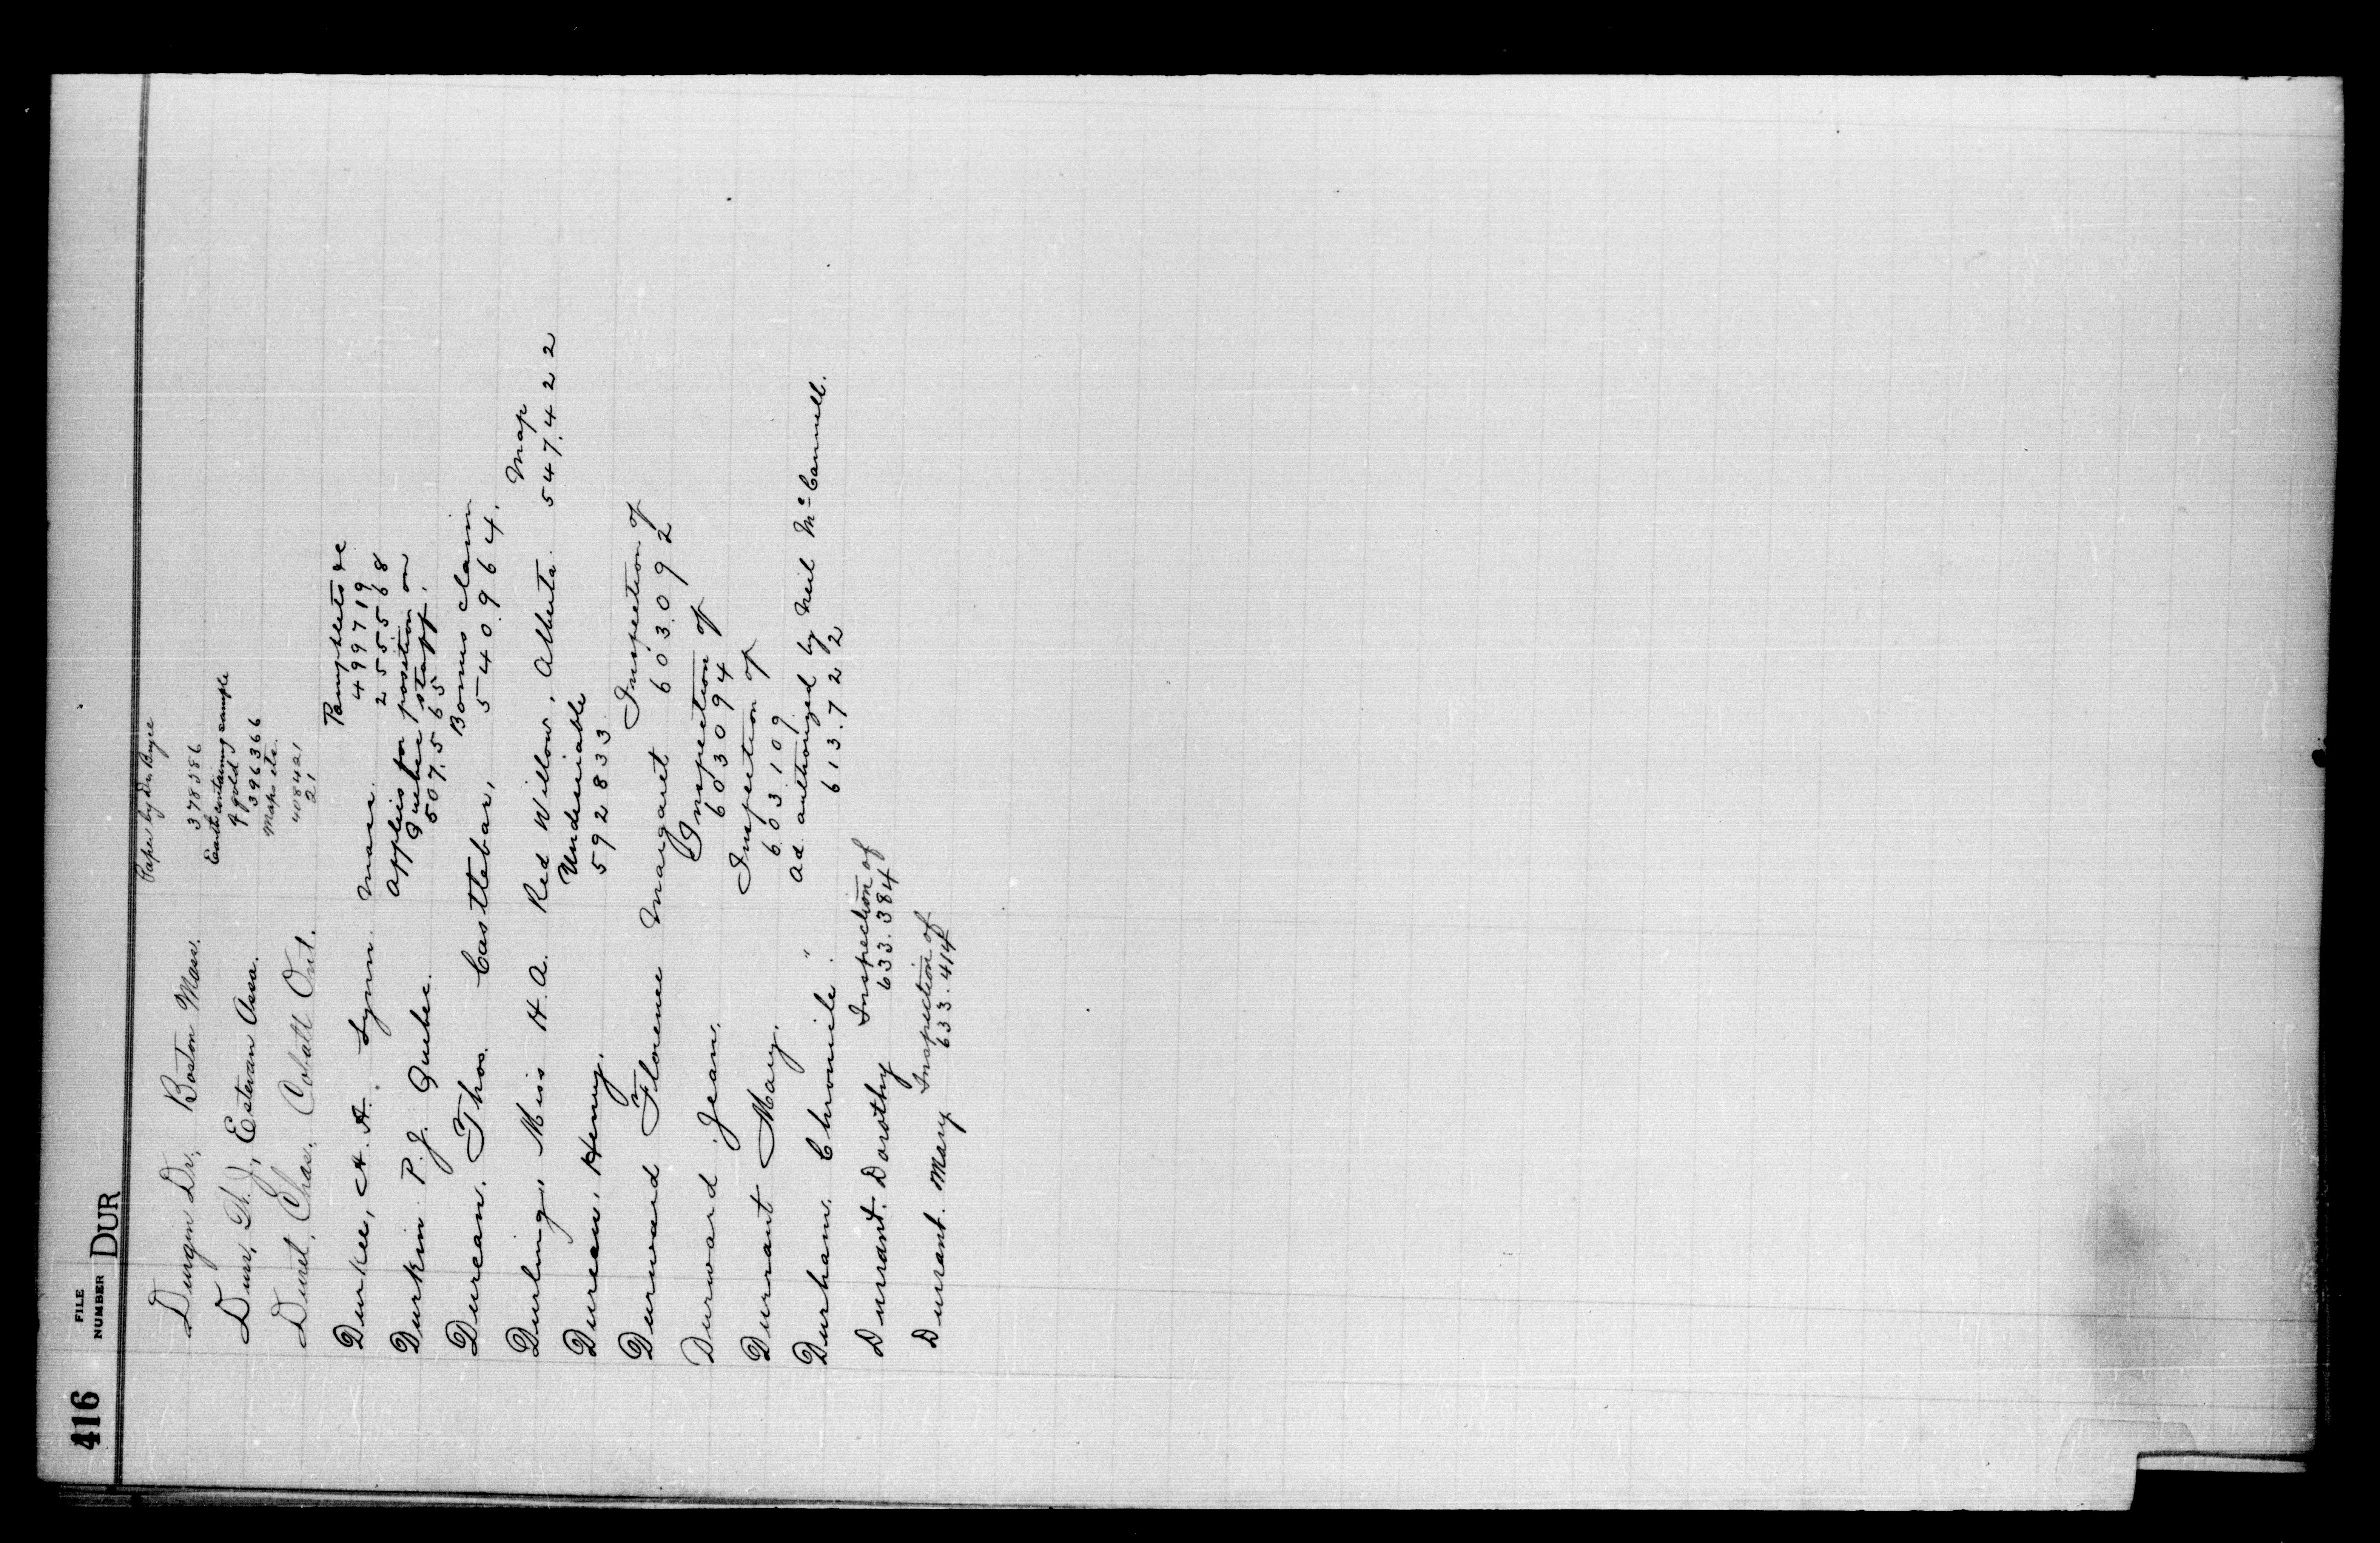 416 FILE NUMBER DUR
Paper by Dr. Bryce
Durgin Dr, Boston Mass. 378386
Earth containing sample of gold
Durr, D. J, Estevan Assa. 396366
Maps etc.
Duret, Chas, Cobalt Ont. 408421
21
Pamphlets &c
Durkee, A. A. Lynn Mass. 499719
255568
applies for position on
Durkin P. J. Quebec. Quebec staff.
507.565
Bonus claim
Durcan. Thos. Castlebar, 540.964.
Map
Durling, Miss H. A. Red Willow, Alberta. 547.422
Undesirable
Durcan, Henry. 592833
Inspection of
Durward Florence Margaret 603.092
Inspection of
Durward Jean. 603094
Inspection of
Durrant Mary. 603.109
Ad. authorized by Neil McCannell.
Durham. Chronicle. " 613.722
Inspection of
Durrant. Dorothy 633.384
Inspection of
Durrant. Mary 633.414